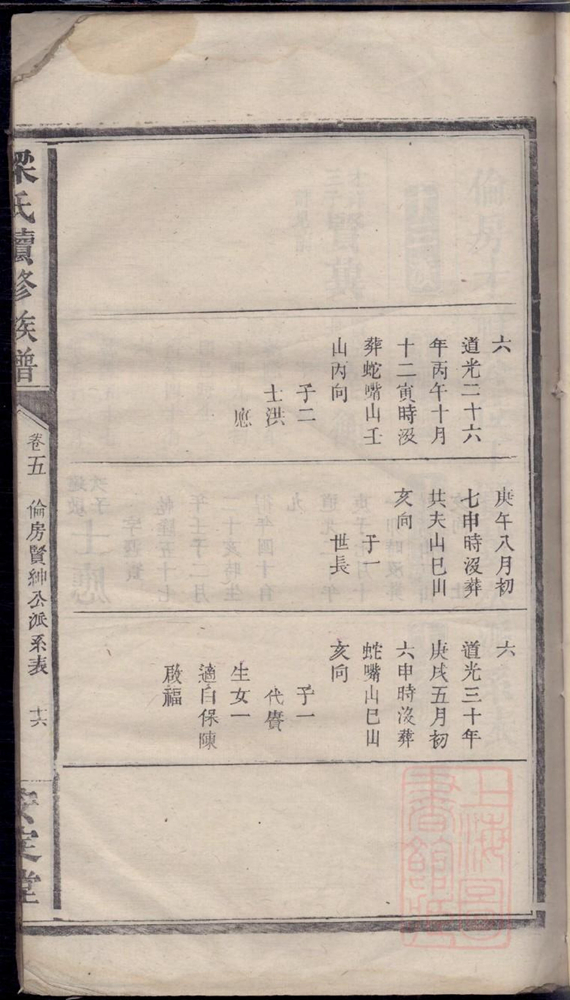 梁氏續修族譜
卷五
倫房賢紳公派系表
十六
安定堂
六
道光二十六
年丙午十月
十二寅時沒
葬蛇嘴山壬
山丙向
子二
士洪
應
庚午八月初
七申時沒葬
共夫山巳山
亥向
子一
世長
六
道光三十年
庚戌五月初
六申時沒葬
蛇嘴山巳山
亥向
子一
代賡
生女一
適白保陳
啟福
上海圖
書館藏